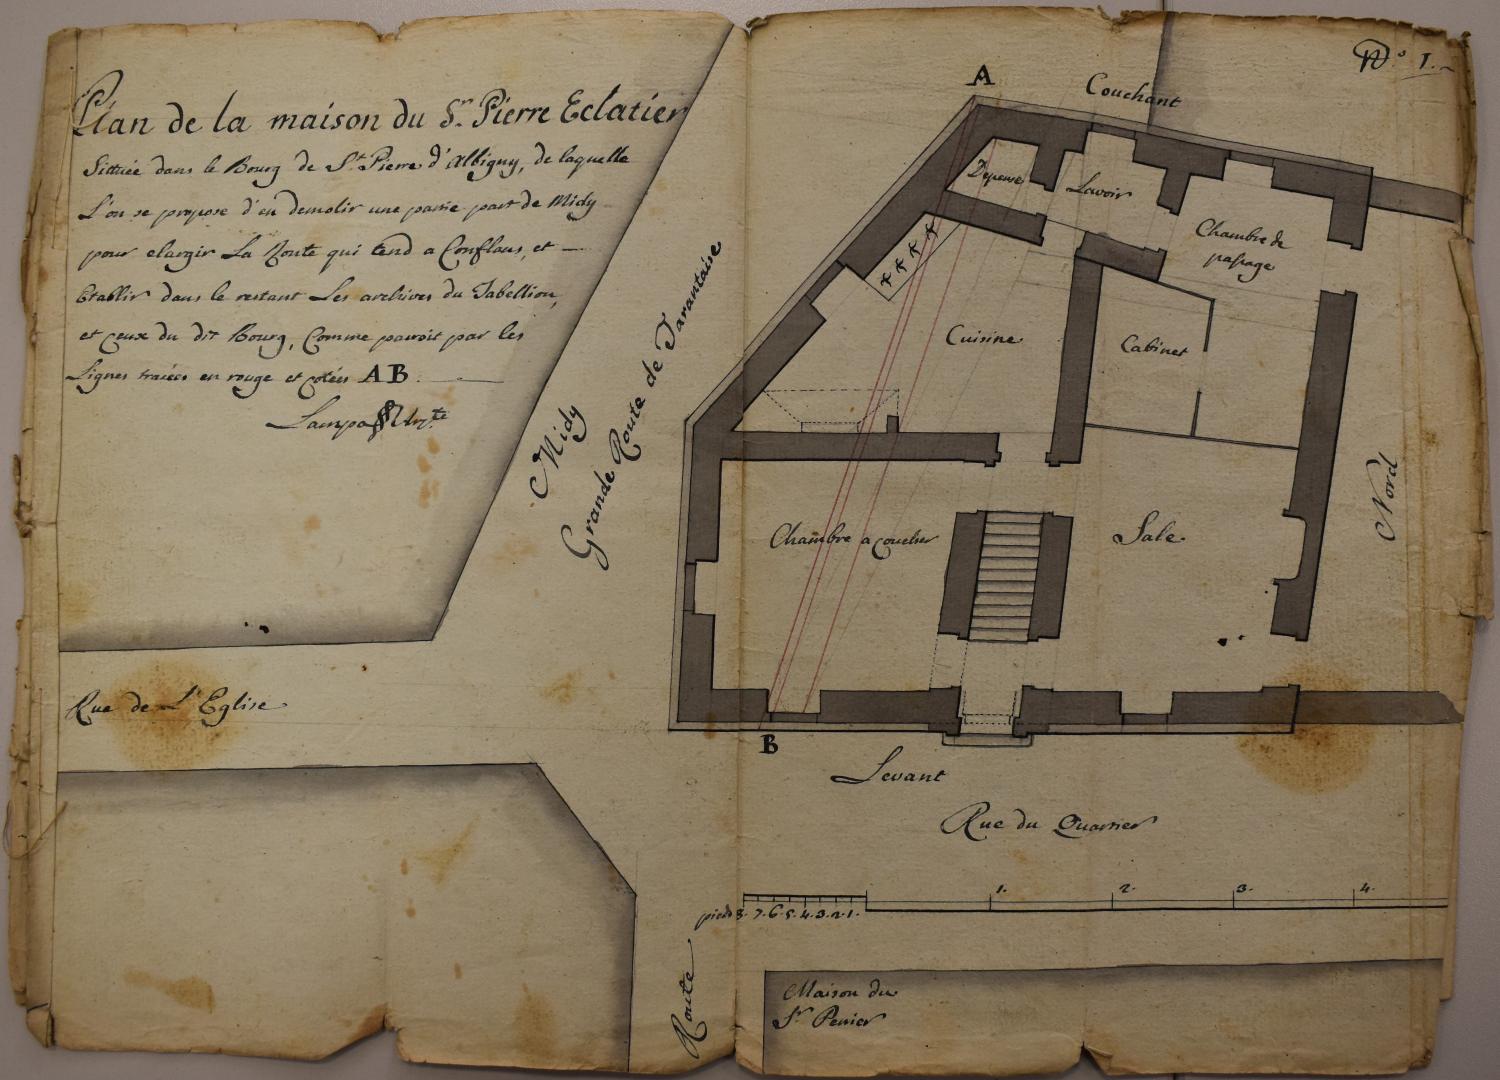 N.° 1.
Plan de la maison du Sr. Pierre Eclatier
Sittuée dans le Bourg de St. Pierre d'Albigny, de laquelle
L'on se propose d'en demolir une partie part de Midy
pour elargir La Route qui tend a Conflans, et
Etablir dans le restant Les archives du Tabellion,
et ceux du dit Bourg, Comme paroit par les
Lignes tracées en rouge et cotées A B
A
Couchant
Depense
Lavoir
Chambre de
passage
Cuisine
Cabinet
Midy
Grande Route de Tarantaise
Nord
Chambre a coucher
Sale
Rue de L'Eglise
B
Levant
Rue du Quartier
pieds 8. 7. 6. 5. 4. 3. 2. 1.
1. 2. 3. 4.
Route
Maison du
Sr. Perrier